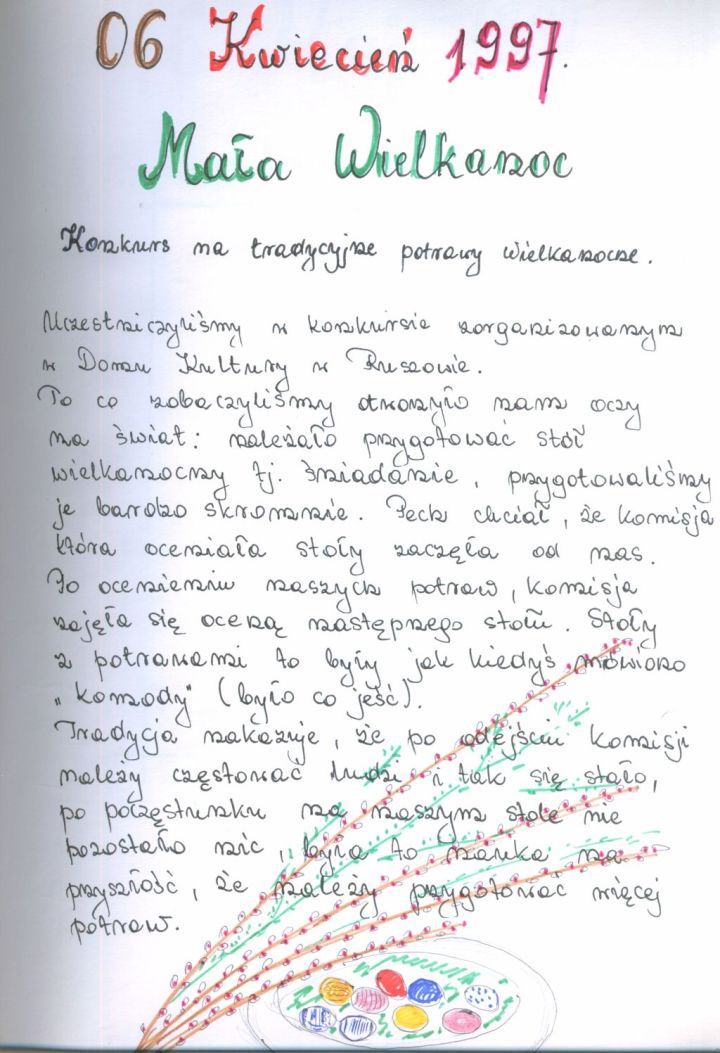 06 Kwiecień 1997.
Mała Wielkanoc
Konkurs na tradycyjne potrawy wielkanocne.
Uczestniczyliśmy w konkursie zorganizowanym
w Domu Kultury w Ruszowie.
To co zobaczyliśmy otworzyło nam oczy
na świat: należało przygotować stół
wielkanocny tj. śniadanie, przygotowaliśmy
je bardzo skromnie. Pech chciał, że komisja
która oceniała stoły zaczęła od nas.
Po ocenieniu naszych potraw, komisja
zajęła się oceną następnego stołu. Stoły
z potrawami to były jak kiedyś mówiono
"komody" (było co jeść).
Tradycja nakazuje, że po odejściu komisji
należy częstować ludzi i tak się stało,
po poczęstunku na naszym stole nie
pozostało nic, była to nauka na
przyszłość, że należy przygotować więcej
potraw.